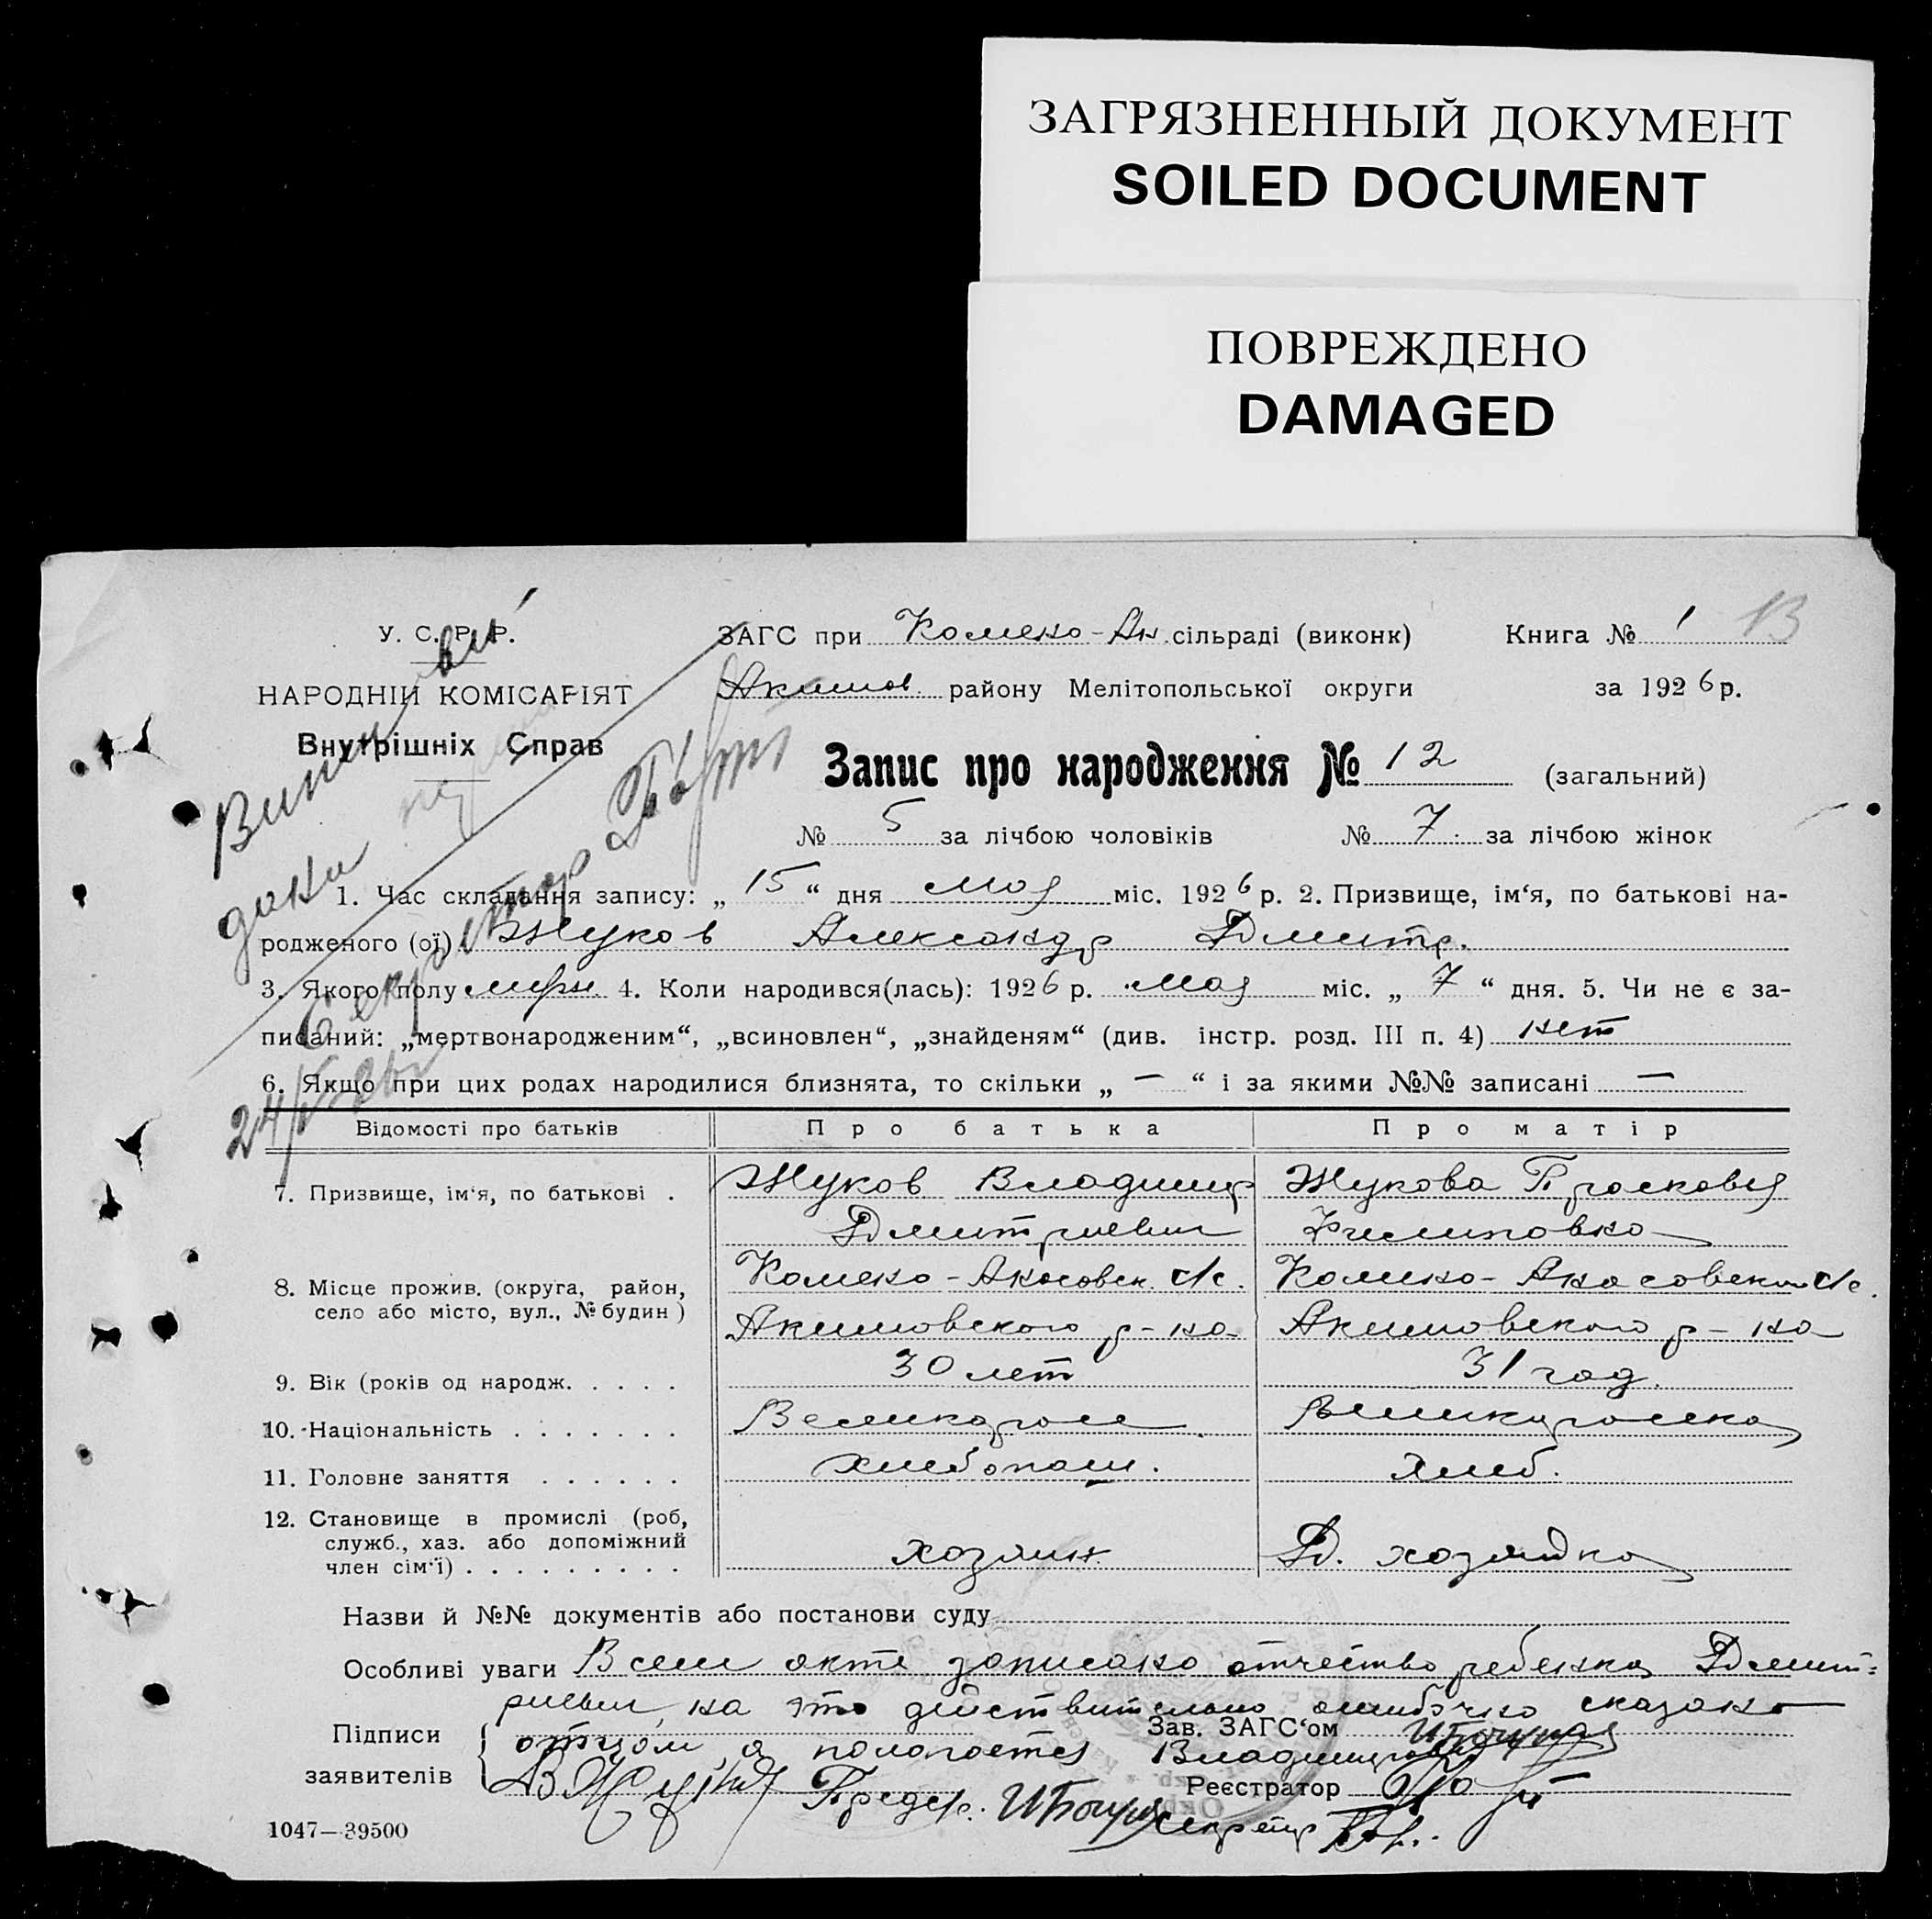 ЗАГРЯЗНЕННЫЙ ДОКУМЕНТ
SOILED DOCUMENT
ПОВРЕЖДЕНО
DAMAGED
У. С. Р. Р.
НАРОДНІЙ КОМІСАРІЯТ
Внутрішніх Справ
ЗАГС при Комеко-Ак. сільраді (виконк) Книга № 1 13
Акимов. району Мелітопольської округи за 1926 р.
Запис про народження № 12 (загальний)
№ 5 за лічбою чоловіків № 7. за лічбою жінок
1. Час складання запису: „ 15 “ дня мая міс. 1926 р. 2. Призвище, ім‘я, по батькові на-
родженого (ої) Жуков Александр Дмитр.
3. Якого полу 4. Коли народився(лась): 1926 р. мая міс. „ 7 “ дня. 5. Чи не є за-
писаний: „мертвонародженим“, „всиновлен“, „знайденям“ (див. інстр. розд. III п. 4) нет
6. Якщо при цих родах народилися близнята, то скільки „ — “ і за якими №№ записані —
Відомості про батьків Про батька Про матір
7. Призвище, ім‘я, по батькові . Жуков Владимир Жукова Прасковья
Дмитриевич Филиповна
8. Місце прожив. (округа, район, село або місто, вул., № будин) Комеко-Акасовск. с/с. Комеко-Акасовский с/с.
Акимовского р-на Акимовского р-на
9. Вік (років од народж. . . . . 30 лет 31 год.
10. Національність . . . . . . . Великоросс Великоросска
11. Головне заняття . . . . . . хлебопаш. хлеб.
12. Становище в промислі (роб, служб., хаз. або допоміжний член сім‘ї) . . . . . . . . . хозяин Д. хозяйка
Назви й №№ документів або постанови суду
Особливі уваги В сем акте записано отчество ребенка Дмит=
риевич, на это действительно ошибочно сказано
отцом, а пологается Владимирович
Підписи заявителів В Жуков
Зав. ЗАГС‘ом
Реєстратор
Предс. Секретар
1047—39500
Секретар
24/V-26